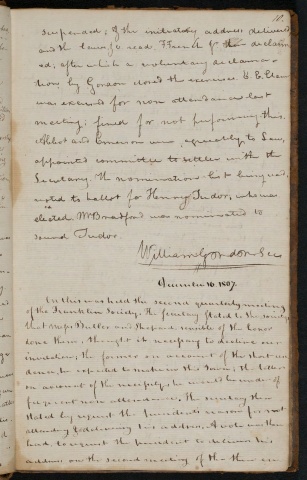 10.
suspended; & the initiatory address delivered
and the laws, &c. read. French & then declaim
ed; after which a voluntary declama-
tion by Gordon closed the exercises. E. Clean
was excused for non attendance last
meeting; fined for not performing this.
Abbot and Emerson were, agreeably to Law,
appointed committee to settle with the
Secretary. The nomination list being read,
voted to ballot for Henry Tudor; who was
elected. Mr Bradford was nominated to
sound Tudor.
William Gordon Sec
December 10 1807.
On this was held the second quarterly meeting
of the Franklin Society. The Secretary stated to the society
that Messrs Butler and Shepard, members of the honor
thought it necessary to decline our
invitation; the former on account of the short un
he expected to make in this Town; the latter
on account of the necessity he would be under of
frequent non attendance. The Secretary then
stated by request the President's reason for not
attending & delivering his address. A vote was then
to request the President to deliver his
address on the second meeting of the